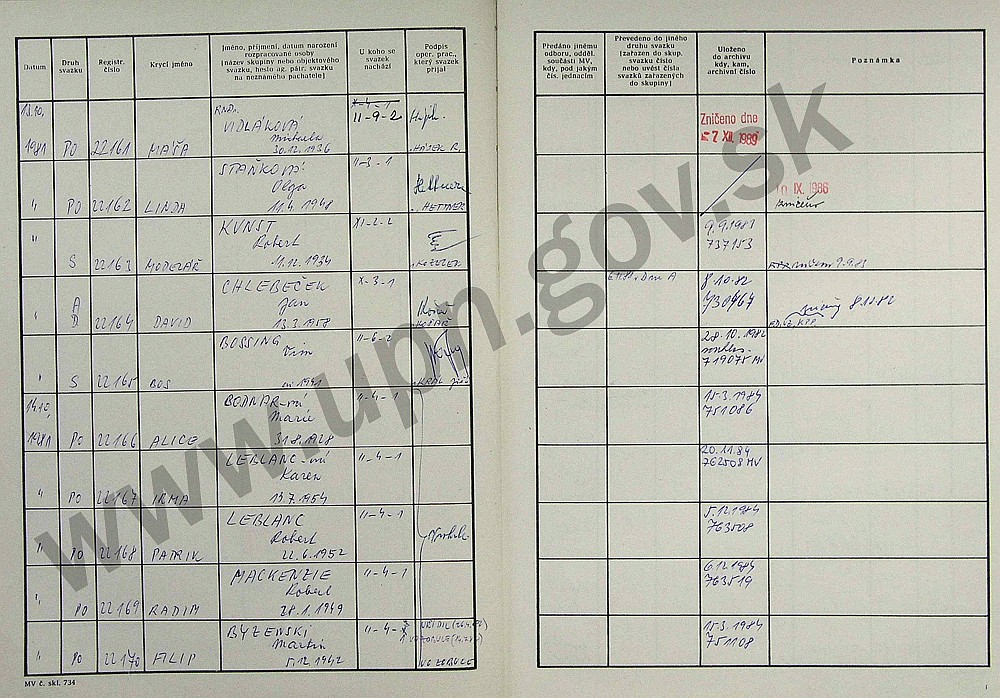 Datum
Druh svazku
Registr. číslo
Krycí jméno
Jméno, příjmení, datum narození
rozpracované osoby
(název skupiny nebo objektového
svazku, heslo ag. pátr. svazku
na neznámého pachatele)
U koho se
svazek
nachází
Podpis
oper. prac.,
který svazek
přijal
Předáno jinému
odboru, odděl.
součásti MV,
kdy, pod jakým
čís. jednacím
Převedeno do jiného
druhu svazku
(zařazen do skup.
svazku číslo
nebo uvést čísla
svazků zařazených
do skupiny)
Uloženo
do archivu
kdy, kam,
archivní číslo
Poznámka
13.10. RNDr. X-4-1
VIDLÁKOVÁ 11-9-2
Michaela
1981 PO 22161 MÁŤA 30.12.1936 HÁJEK R.
Zničeno dne
-7 XII. 1989
STAŇKOVÁ 11-3-1
Olga
" PO 22162 LINDA 11.4.1948 HETTNER
10 IX. 1986
zničeno
" KUNST XI-2-2
Robert
S 22163 MODELÁŘ 11.12.1934
9.9.1983
737153
9.9.83
CHLEBEČEK X-3-1
A Jan
" D 22164 DAVID 13.3.1958 KOLÁŘ
8.10.82
730464
8.11.82
BOSSING 11-6-2
Wim
" S 22165 BOS 1941 KRÁL
28.10.1982
719075 MV
14.10. BODNAR-ová 11-4-1
Marie
1981 PO 22166 ALICE 31.8.1928
15.3.1984
751086
LEBLANC-ová 11-4-1
Karen
" PO 22167 IRMA 13.7.1954
20.11.84
762508 MV
LEBLANC 11-4-1
Robert
" PO 22168 PATRIK 22.6.1952
5.12.1984
763508
MACKENZIE 11-4-1
Robert
" PO 22169 RADIM 28.1.1949
6.12.1984
763519
BYZENSKI 11-4-
Martin
" PO 22170 FILIP 5.12.1942
15.3.1984
751108
MV č. skl. 734
www.upn.gov.sk